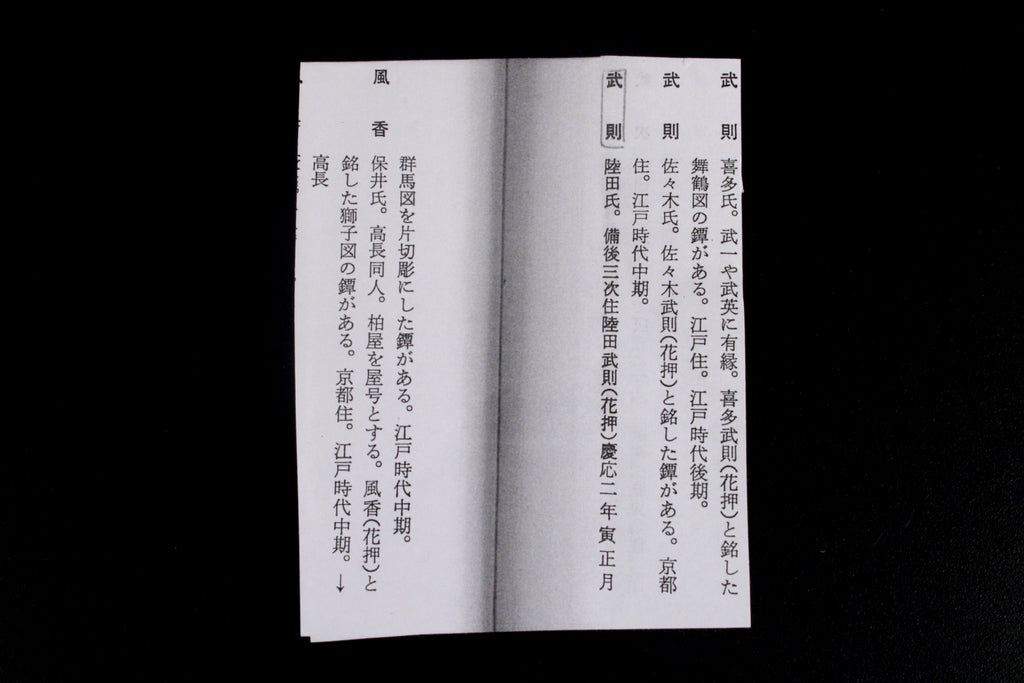 武則　喜多氏。武一や武英に有縁。喜多武則(花押)と銘した
舞鶴図の鐔がある。江戸住。江戸時代後期。
武則　佐々木氏。佐々木武則(花押)と銘した鐔がある。京都
住。江戸時代中期。
武則　陸田氏。備後三次住陸田武則(花押)慶応二年寅正月
群馬図を片切彫にした鐔がある。江戸時代中期。
風香　保井氏。高長同人。柏屋を屋号とする。風香(花押)と
銘した獅子図の鐔がある。京都住。江戸時代中期。↓
高長